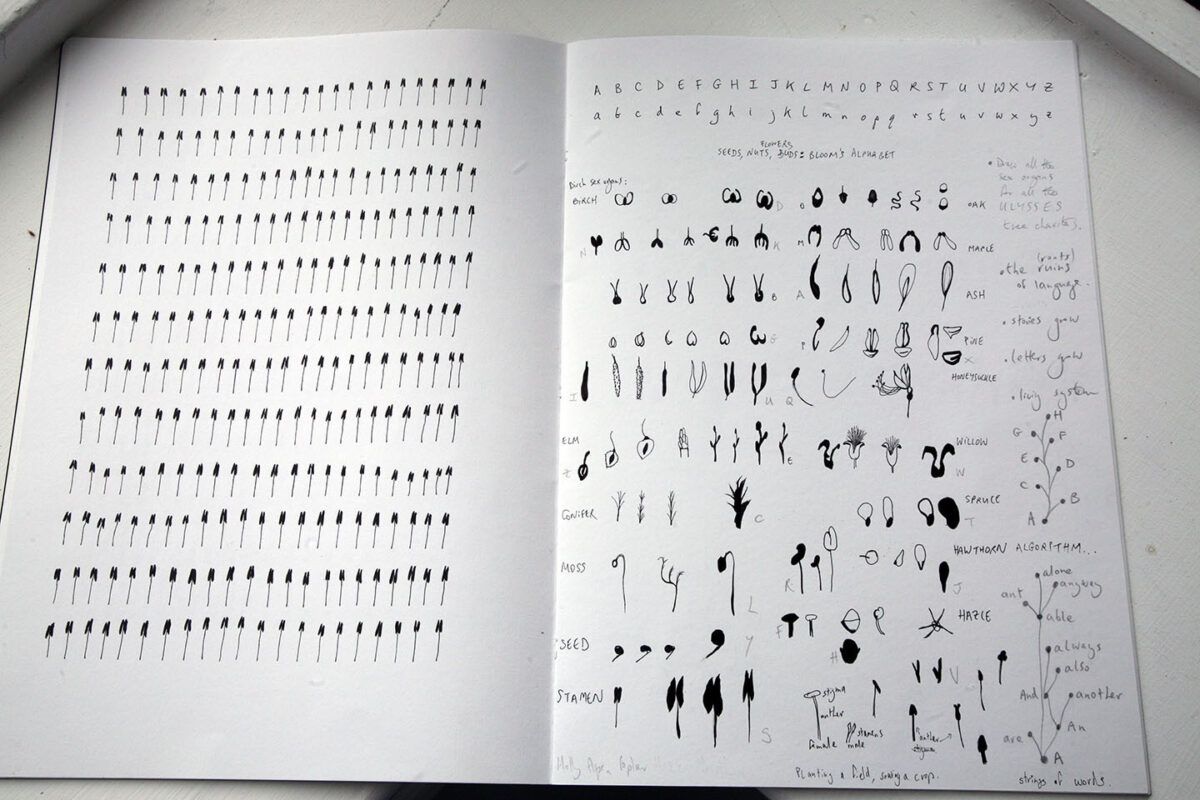 A B C D E F G H I J K L M N O P Q R S T U V W X Y Z
a b c d e f g h i j k l m n o p q r s t u v w x y z
FLOWERS
SEEDS, NUTS, BUDS: BLOOM'S ALPHABET
Birch sex organs:
BIRCH D O OAK
N K M MAPLE
B A ASH
G P PINE
X
I U Q HONEYSUCKLE
ELM E WILLOW
Z W
CONIFER C SPRUCE
T
MOSS L R HAWTHORN ALGORITHM...
J
F HAZLE
SEED Y H
V
STAMEN S
stigma
anther
female
stamens
male
anther
stigma
Planting a field, sowing a crop.
• Draw all the
sex organs
for all the
ULYSSES
tree charites.
(roots)
• the ruins
of language.
• stories grow
• letters grow
• living system
H
G F
E D
C B
A
alone
anyway
ant
able
always
also
And another
An
are
A
strings of words.